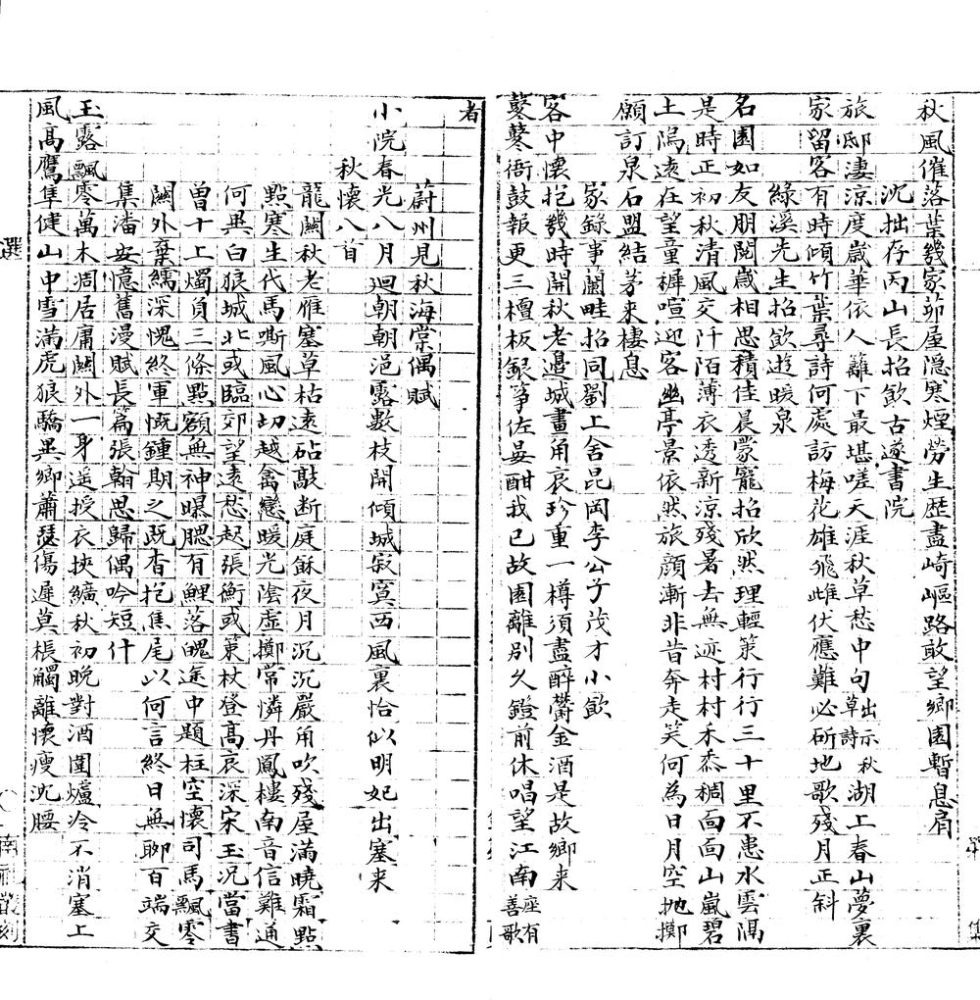 秋風催落葉幾家茆屋隠寒煙勞生歴盡崎嶇路敢望鄉園暫息肩
沈拙存丙山長招飲古遂書院
旅邸淒涼度歲華依人籬下最堪嗟天涯秋草愁中句出示秋草詩湖上春山夢裏
家留客有時傾竹葉尋詩何處訪梅花雄飛雌伏應難必斫地歌殘月正斜
綠溪先生招飲遊暖泉
名園如友朋閱歲相思積佳晨蒙寵招欣然理輕策行行三十里不患水雲隔
是時正初秋清風交阡陌薄衣透新涼殘暑去無迹村村禾黍稠面面山嵐碧
土隝遠在望童穉喧迎客幽亭景依然旅顏漸非昔奔走笑何為日月空抛擲
願訂泉石盟結茅來棲息
家錄事蘭畦招同劉上舍昆岡李公子茂才小飲
客中懷抱幾時開秋老邊城畫角哀珍重一樽須盡醉鬱金酒是故鄉來
鼕鼕衙鼓報更三檀板銀箏佐晏酣我已故園離別久鐙前休唱望江南座有善歌
者
蔚州見秋海棠偶賦
小院春光八月迴朝朝浥露數枝開傾城寂寞西風裏恰似明妃出塞來
秋懷八首
龍闕秋老雁塞草枯遠砧敲断庭稣夜月沉沉嚴角吹殘屋滿曉霜點
點寒生代馬嘶風心切越禽戀暖光陰虛擲常憐丹鳳樓南音信難通
何異白狼城北或臨郊望遠愁起張衡或策杖登高哀深宋玉況當書
曾十上燭負三條點額無神曝腮有鯉落魄途中題柱空懷司馬飄零
關外棄繻深愧終軍慨鍾期之既杳抱焦尾以何言終日無聊百端交
集潘安憶舊漫賦長篇張翰思歸偶吟短什
玉露飄零萬木凋居庸關外一身遥授衣挾纊秋初晚對酒圍爐冷不消塞上
風高鷹隼健山中雪滿虎狼驕異鄉蕭瑟傷遲莫棖觸離懷瘦沈腰
選